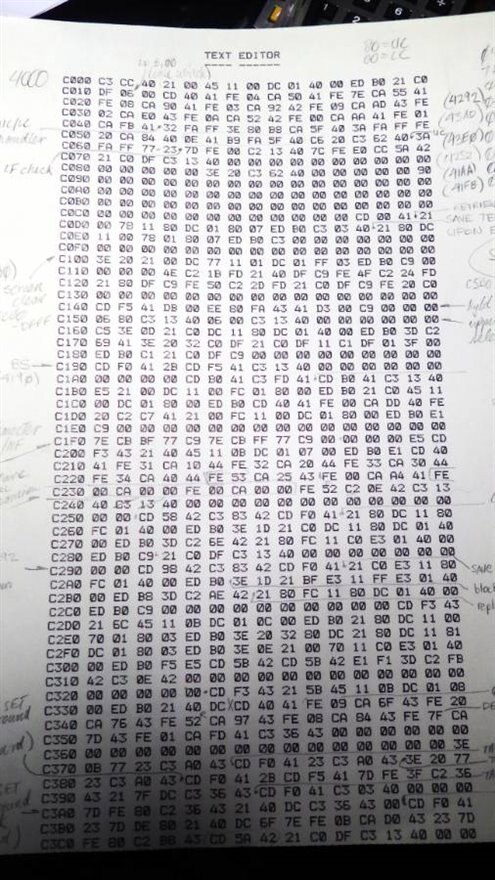 TEXT EDITOR
80=DC
00=CC
4000
C000 C3 CC 40 21 00 45 11 00 DC 01 40 00 ED B0 21 C0
C010 DF 06 00 CD 40 41 FE 04 CA 50 41 FE 7E CA 55 41
C020 FE 08 CA 90 41 FE 03 CA 92 42 FE 09 CA AD 43 FE
C030 02 CA E0 43 FE 0A CA 52 42 FE 00 CA AA 41 FE 01
C040 CA FB 41 32 FA FF 3E 80 B8 CA 5F 40 3A FA FF FE
C050 20 CA 84 40 0E 41 B9 FA 5F 40 C6 20 C3 62 40 3A
C060 FA FF 77 23 7D FE 00 C2 13 40 7C FE E0 CC 5A 42
C070 21 C0 DF C3 13 40 00 00 00 00 00 00 00 00 00 00
C080 00 00 00 00 3E 20 C3 62 40 00 00 00 00 00 00 90
C090 00 00 00 00 00 00 00 00 00 00 00 00 00 00 00 00
C0A0 00 00 00 00 00 00 00 00 00 00 00 00 00 00 00 00
C0B0 00 00 00 00 00 00 00 00 00 00 00 00 00 00 00 00
C0C0 00 00 00 00 00 00 00 00 00 00 00 00 CD 00 41 21
C0D0 00 78 11 80 DC 01 80 07 ED B0 C3 03 40 21 80 DC
C0E0 11 00 78 01 80 07 ED B0 C3 00 00 00 00 00 00 00
C0F0 00 00 00 00 00 00 00 00 00 00 00 00 00 00 00 00
C100 3E 20 21 00 DC 77 11 01 DC 01 FF 03 ED B0 C9 00
C110 00 00 00 4E C2 1B FD 21 40 DF C9 FE 4F C2 24 FD
C120 21 80 DF C9 FE 50 C2 2D FD 21 C0 DF C9 FE 20 C0
C130 00 00 00 00 00 00 00 00 00 00 00 00 00 00 00 00
C140 CD F5 41 DB 00 EE 80 FA 43 41 D3 00 C9 00 00 00
C150 06 80 C3 13 40 06 00 C3 13 40 00 00 00 00 00 00
C160 C5 3E 0D 21 C0 DC 11 80 DC 01 40 00 ED B0 3D C2
C170 69 41 3E 20 32 C0 DF 21 C0 DF 11 C1 DF 01 3F 00
C180 ED B0 C1 21 C0 DF C9 00 00 00 00 00 00 00 00 00
C190 CD F0 41 2B CD F5 41 C3 13 40 00 00 00 00 00 00
C1A0 00 00 00 00 CD B0 41 C3 FD 41 CD B0 41 C3 13 40
C1B0 E5 21 00 DC 11 00 FC 01 80 00 ED B0 21 C0 45 11
C1C0 00 DC 01 80 00 ED B0 CD 40 41 FE 00 CA DD 40 FE
C1D0 20 C2 C7 41 21 00 FC 11 00 DC 01 80 00 ED B0 E1
C1E0 C9 00 00 00 00 00 00 00 00 00 00 00 00 00 00 00
C1F0 7E CB BF 77 C9 7E CB FF 77 C9 00 00 00 00 E5 CD
C200 F3 43 21 40 45 11 0B DC 01 07 00 ED B0 E1 CD 40
C210 41 FE 31 CA 10 44 FE 32 CA 20 44 FE 33 CA 30 44
C220 FE 34 CA 40 44 FE 53 CA 25 43 FE 00 CA A4 41 FE
C230 00 CA 00 00 FE 00 CA 00 00 FE 52 C2 0E 42 C3 13
C240 40 C3 13 40 00 00 00 00 00 00 00 00 00 00 00 00
C250 00 00 CD 58 42 C3 83 42 CD F0 41 21 80 DC 11 80
C260 FC 01 40 00 ED B0 3E 1D 21 C0 DC 11 80 DC 01 40
C270 00 ED B0 3D C2 6E 42 21 80 FC 11 C0 E3 01 40 00
C280 ED B0 C9 21 C0 DF C3 13 40 00 00 00 00 00 00 00
C290 00 00 CD 98 42 C3 83 42 CD F0 41 21 C0 E3 11 80
C2A0 FC 01 40 00 ED B0 3E 1D 21 BF E3 11 FF E3 01 40
C2B0 00 ED B8 3D C2 AE 42 21 80 FC 11 80 DC 01 40 00
C2C0 ED B0 C9 00 00 00 00 00 00 00 00 00 00 CD F3 43
C2D0 21 6C 45 11 0B DC 01 0C 00 ED B0 21 80 DC 11 00
C2E0 70 01 80 03 ED B0 3E 20 32 80 DC 21 80 DC 11 81
C2F0 DC 01 80 03 ED B0 3E 0E 21 00 70 11 C0 E3 01 40
C300 00 ED B0 F5 E5 CD 5B 42 CD 5B 42 E1 F1 3D C2 FB
C310 42 C3 0E 42 00 00 00 00 00 00 00 00 00 00 00 00
C320 00 00 00 00 00 CD F3 43 21 5B 45 11 0B DC 01 08
C330 00 ED B0 21 40 DC CD 40 41 FE 09 CA 6F 43 FE 20
C340 CA 76 43 FE 52 CA 97 43 FE 08 CA 84 43 FE 7F CA
C350 7D 43 FE 01 CA FD 41 C3 36 43 00 00 00 00 00 00
C360 00 00 00 00 00 00 00 00 00 00 00 00 00 00 00 3E
C370 0B 77 23 C3 A0 43 CD F0 41 23 C3 A0 43 3E 20 77
C380 23 C3 A0 43 CD F0 41 2B CD F5 41 7D FE 3F C2 36
C390 43 21 7F DC C3 36 43 CD F0 41 C3 03 40 00 00 00
C3A0 7D FE 80 C2 36 43 21 40 DC C3 36 43 00 CD F0 41
C3B0 23 7D DE 80 21 40 DC 6F 7E FE 0B CA D0 43 23 7D
C3C0 FE 80 C2 B8 43 CD 5A 42 21 C0 DF C3 13 40 00 00